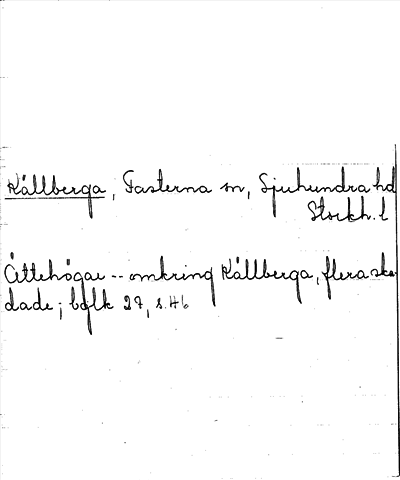 Källberga, Fasterna sn, Sjuhundra hd
Stockh. l
Ättehögar -- omkring Källberga, flera ska-
dade; bglk 27, s. 46